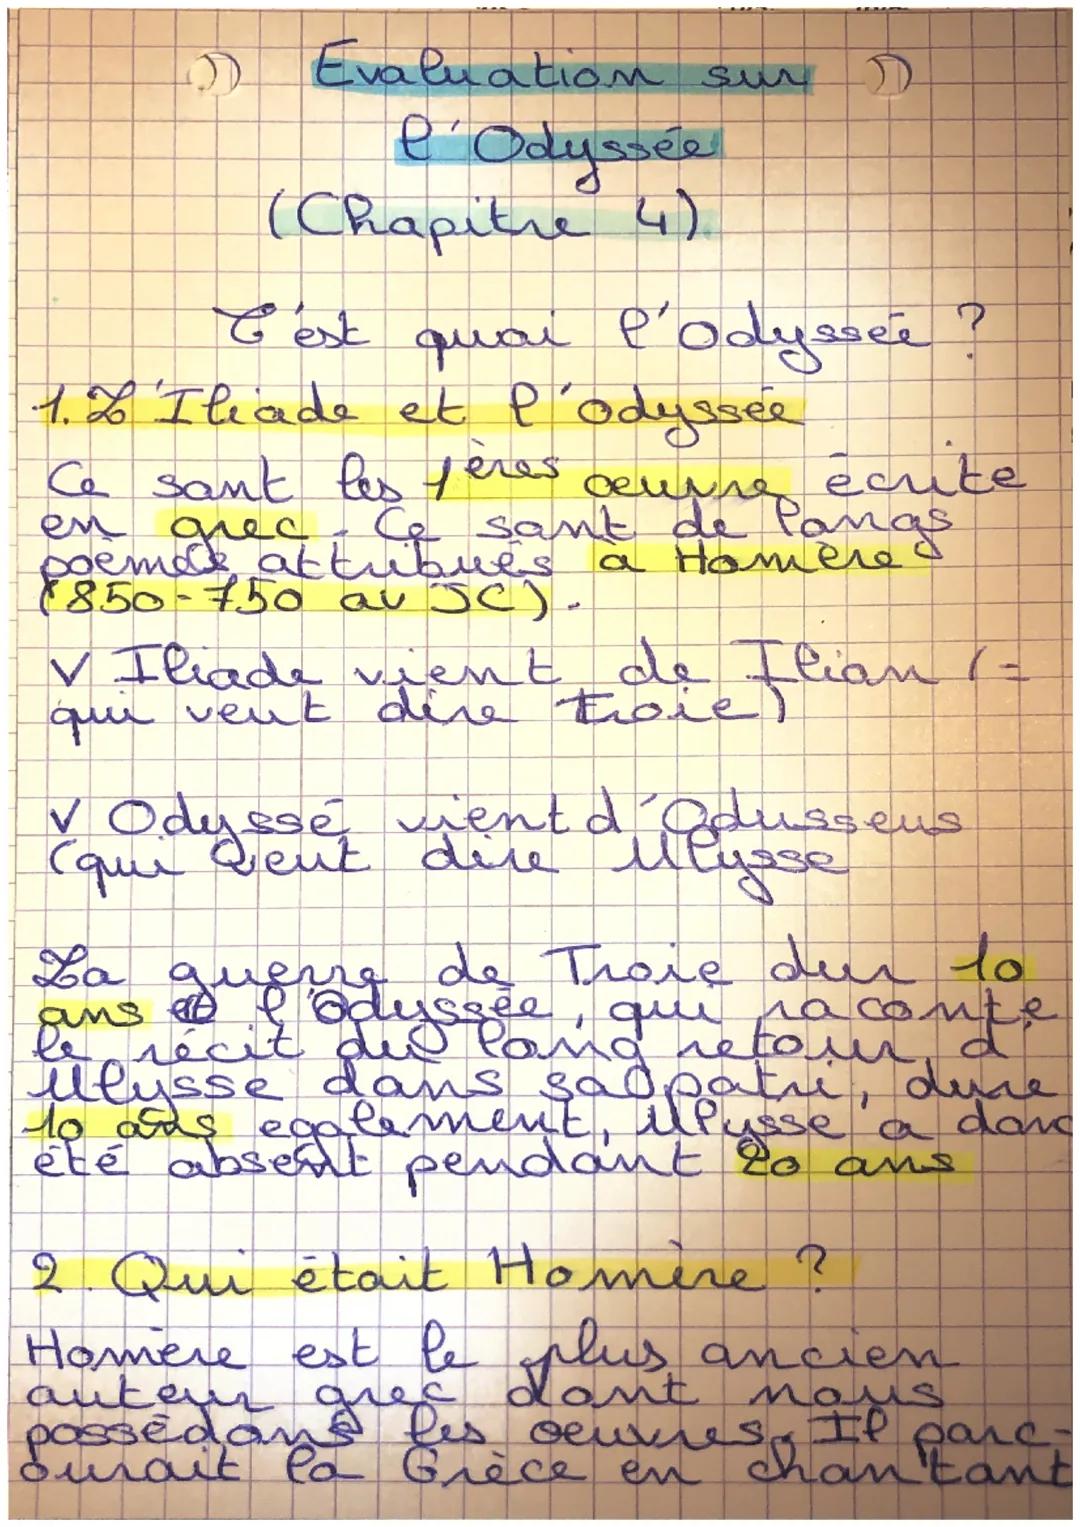 Evaluation sur
l'Odyssée
(Chapitre 4)
C'est quoi l'Odyssée ?
1. L'Iliade et l'odyssée
Ce sont les 1ères œuvre écrite
en grec. Ce sont de longs
poèmes attribués à Homère
(850-750 av JC).
V Iliade vient de Ilion (=
qui veut dire Troie)
V Odyssé vient d'Odusseus
(qui veut dire Ulysse
La guerre de Troie dur 10
ans et l'Odyssée, qui raconte
le récit du long retour d'
Ulysse dans sa patri, dure
10 ans egalement, Ulysse a donc
été absent pendant 20 ans
2. Qui était Homère ?
Homère est le plus ancien
auteur grec dont nous
possédons les oeuvres. Il parc-
ourait la Grèce en chantant